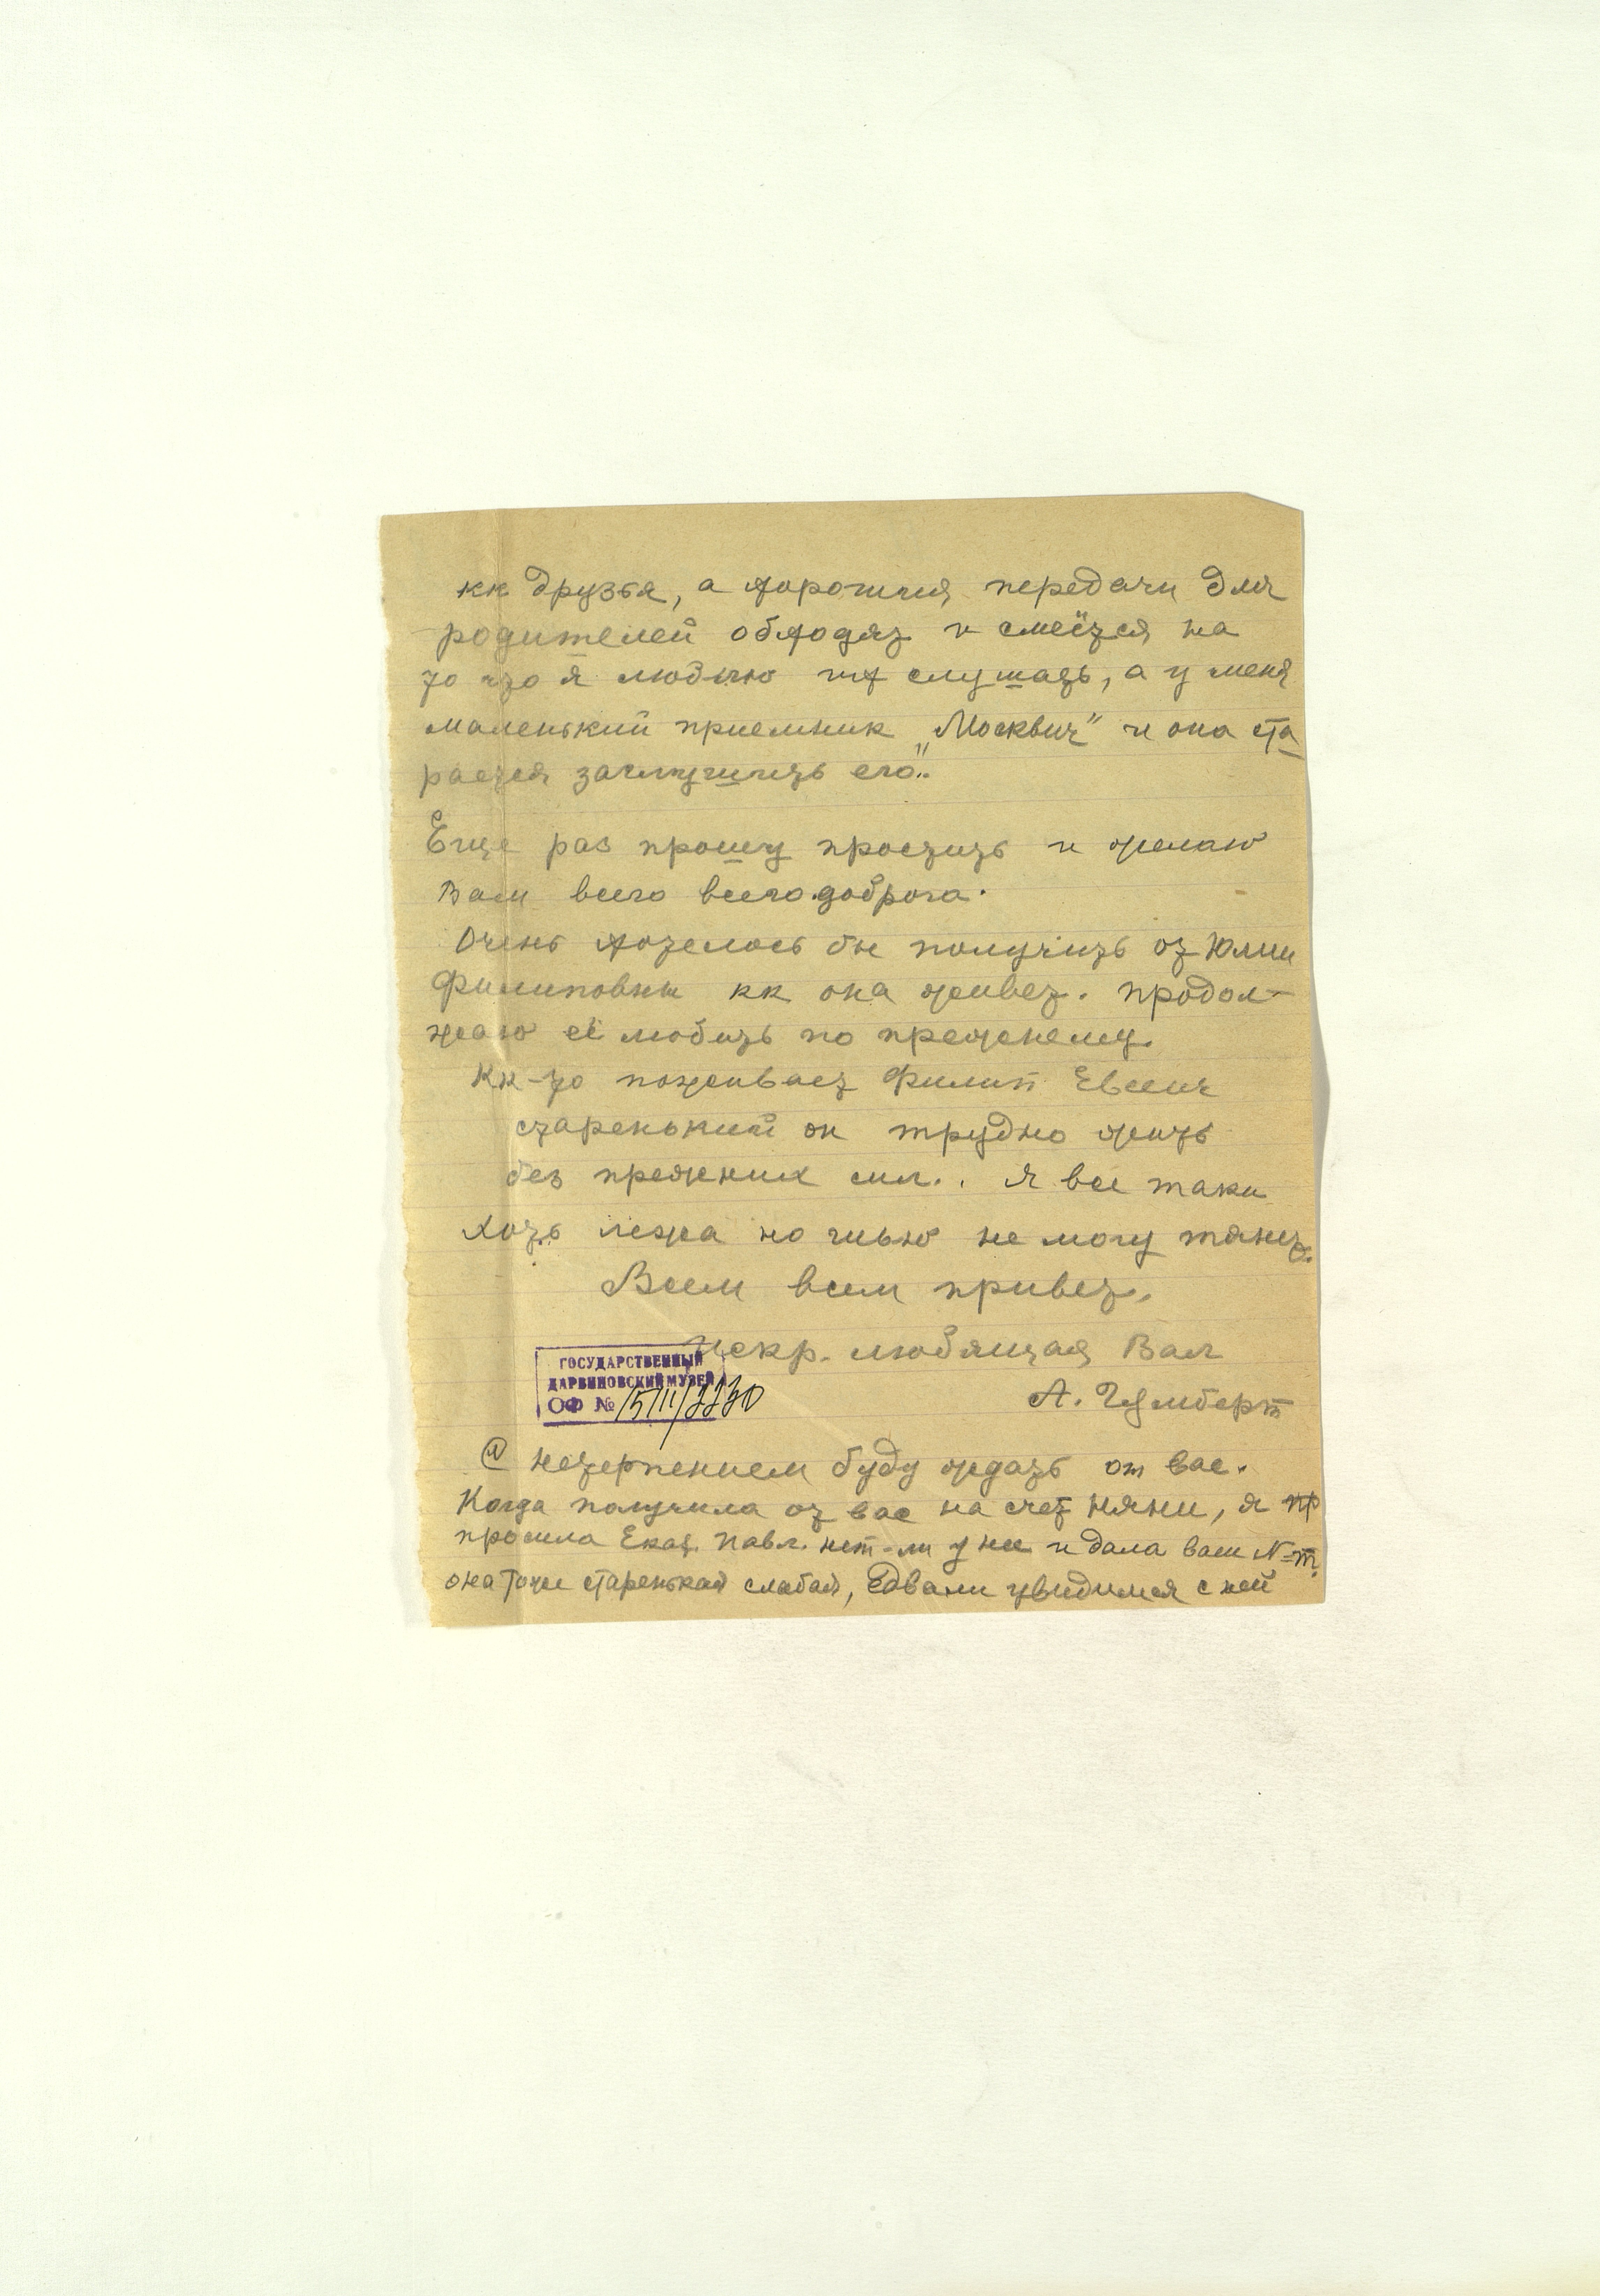 кк друзья, а хорошия передачи для
родителей обходят и смеётся на
то что я люблю их слушать, а у меня
маленький приемник „Москвич" и она ста
рается заглушить его".
Еще раз прошу простить и желаю
Вам всего всего доброго.
Очень хотелось бы получить от Юлии
Филиповны кк она живет. Продол-
жаю её любить по прежнему.
Кк-то поживает Филип Евсеич
старенький он трудно жить
без прежних сил.. Я все таки
хоть лежа но шью не могу
Всем всем привет.
Искр. любящая Вал
А. Гумберт
ГОСУДАРСТВЕННЫЙ
ДАРВИНОВСКИЙ МУЗЕЙ
ОФ №
нетерпением буду ждать от вас.
Когда получила от вас на счет няни, я пр
просила Екат. Павл. нет-ли у нее и дала ваш №-т.
она тоже старенькая слабая, Едвали увидимся с ней